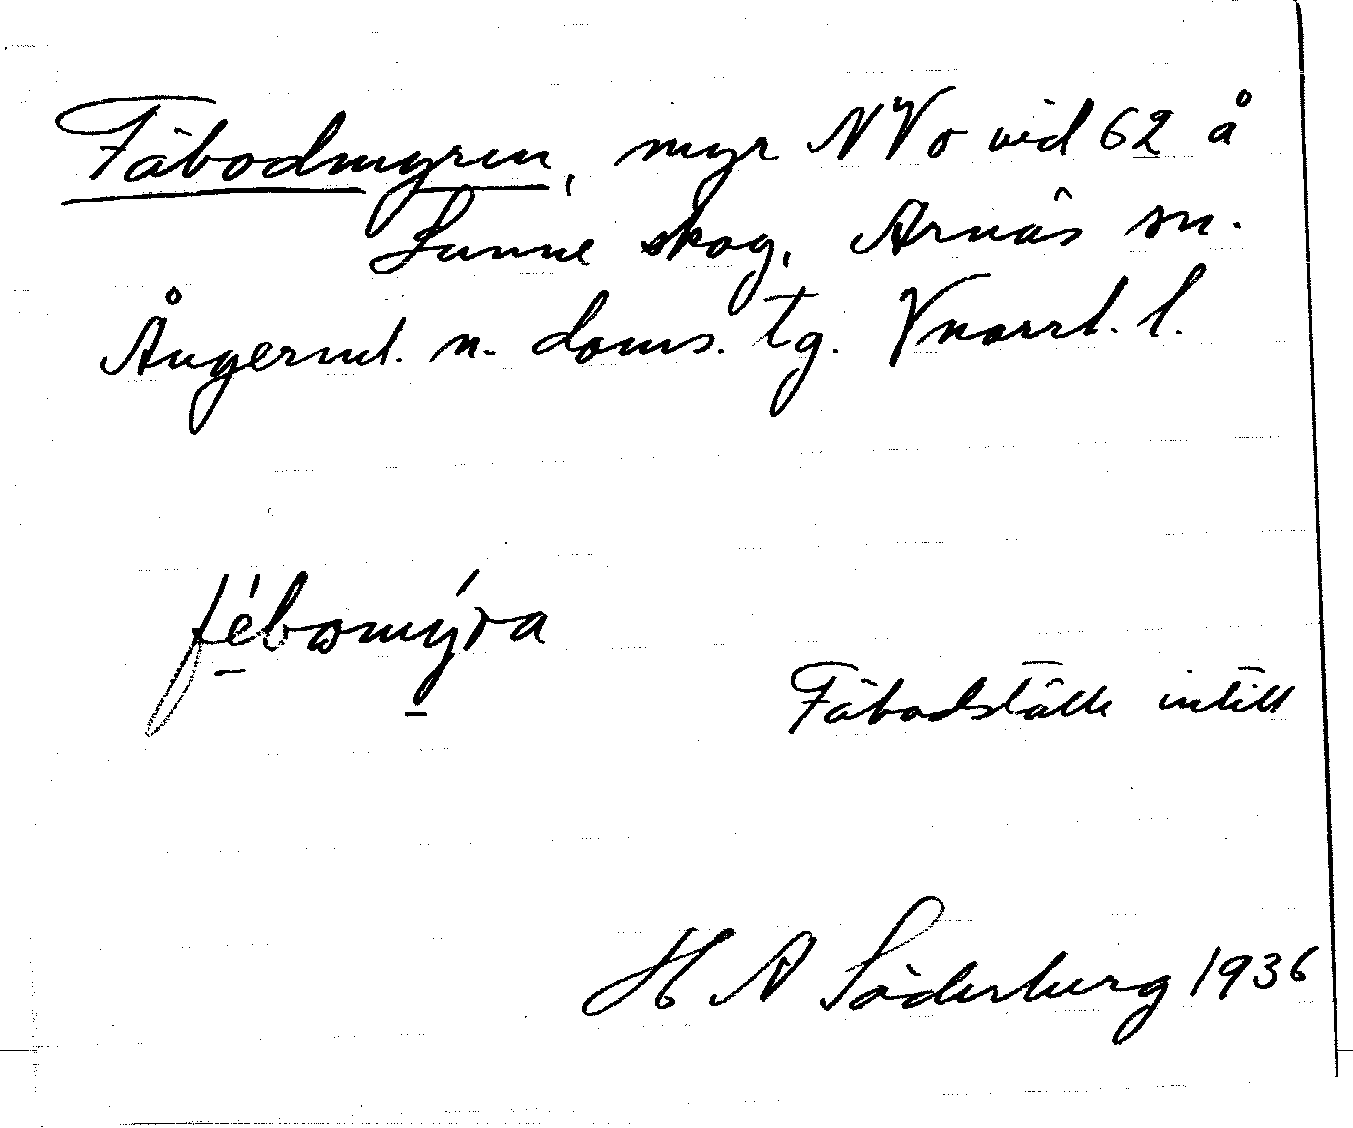 Fäbodmyren, myr NVo vid 62 å
Sunne skog, Arnäs sn.
Ångerml. n. doms. tg. Vnorrl. l.
fébomýra
Fäbodställe intill
H A Söderberg 1936